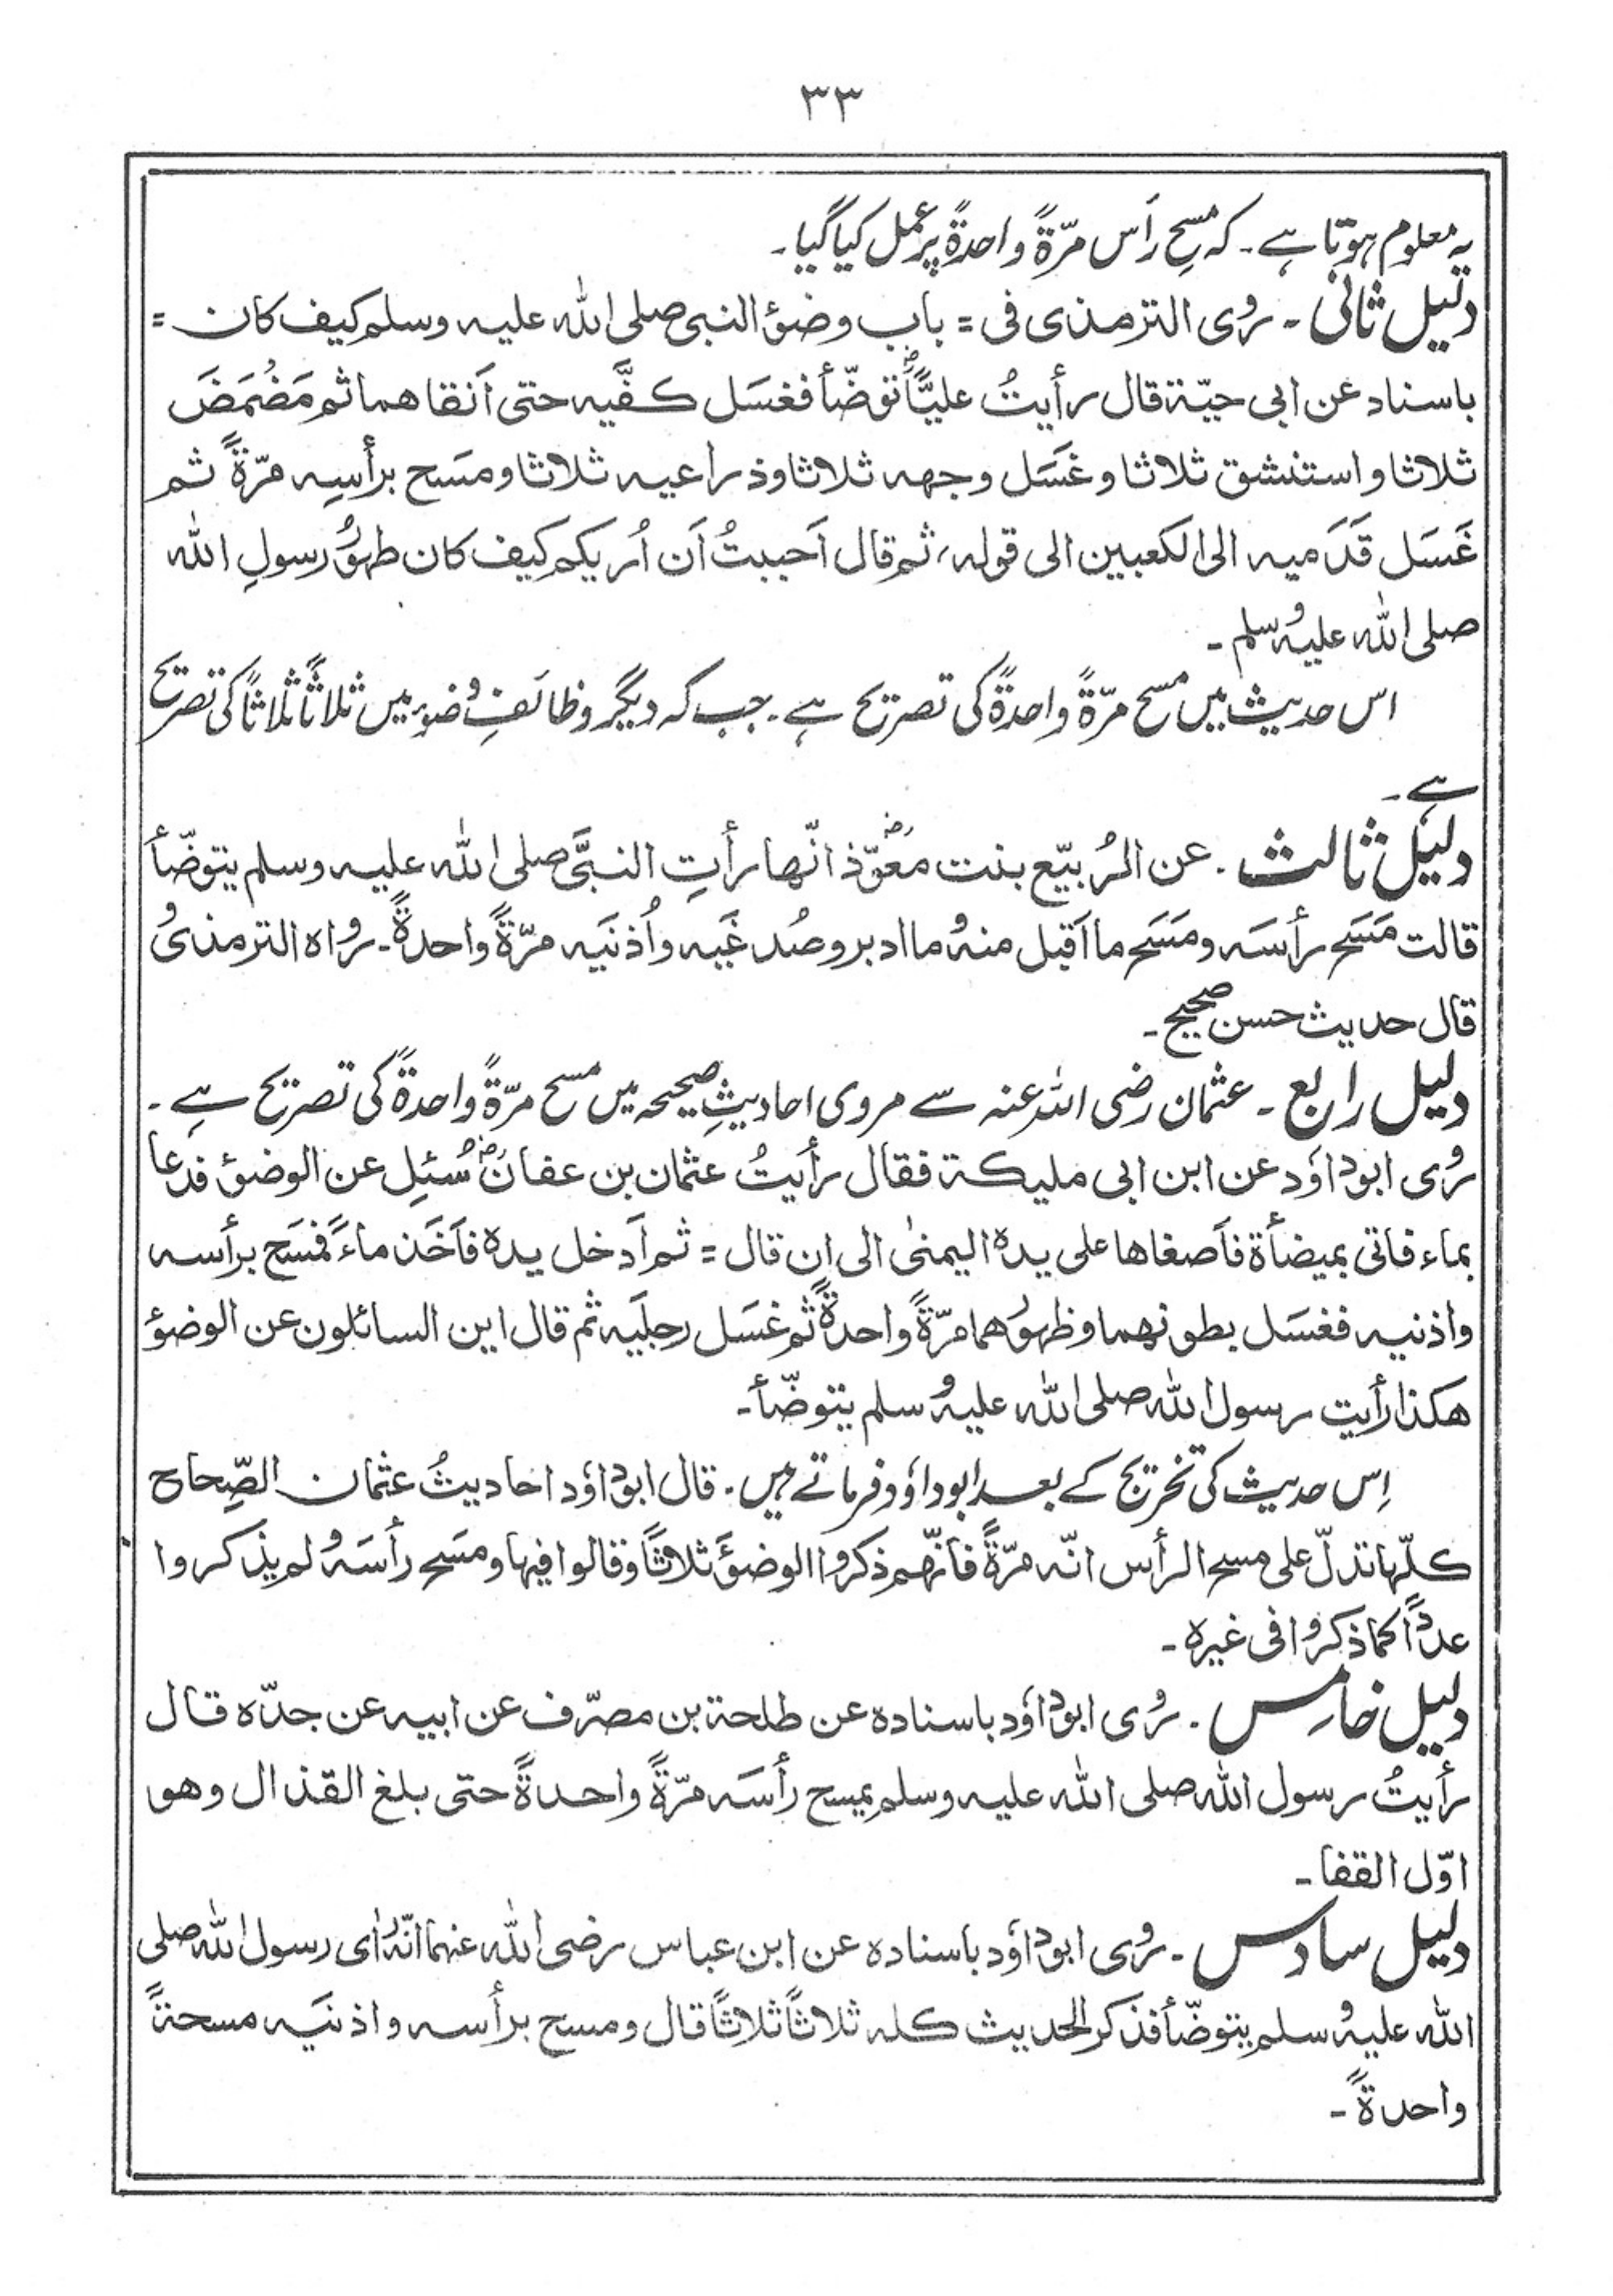 ۳۳
یہ معلوم ہوتا ہے۔ کہ مسحِ رأس مرّۃً واحدۃً پر عمل کیا گیا۔
دلیل ثانی ۔ رَوٰی الترمذی فی = باب وضوٴ النبی صلی اللہ علیہ وسلم کیف کان =
باسناد عن ابی حیّۃ قال رأیتُ علیًّاؓ توضّأ فغسَل کفَّیہ حتی اَنقاھما ثم مَضْمَضَ
ثلاثا واستنشق ثلاثا وغَسَل وجھہ ثلاثا وذراعیہ ثلاثا ومسَح برأسِہ مرّۃً ثم
غَسَل قَدَمیہ الی الکعبین الی قولہ، ثم قال اَحببتُ اَن اُریکم کیف کان طہورُ رسولِ اللہ
صلی اللہ علیہ وسلم ۔
اس حدیث میں مسح مرّۃً واحدۃً کی تصریح ہے۔ جب کہ دیگر وظائفِ وضوء میں ثلاثًا ثلاثًا کی تصریح
ہے۔
دلیل ثالث ۔ عن الرُبیّع بنت معوّذؓ انّھا رأتِ النبیَّ صلی اللہ علیہ وسلم یتوضّأ
قالت مَسَح رأسَہ ومَسَح ما اَقبل منہ وما ادبر وصُدغَیہ واُذنَیہ مرّۃً واحدۃً۔ رواہ الترمذی و
قال حدیث حسن صحیح ۔
دلیل رابع ۔ عثمان رضی اللہ عنہ سے مروی احادیثِ صحیحہ میں مسح مرّۃً واحدۃً کی تصریح ہے ۔
رَوٰی ابوداوٗد عن ابن ابی ملیکۃ فقال رأیتُ عثمان بن عفانؓ سُئِل عن الوضوٴ فدعا
بماء فاتی بمیضأۃ فاَصغاھا علی یدہ الیمنیٰ الی ان قال = ثم اَدخل یدہ فاَخَذ ماءً فمسَح برأسہ
واذنیہ فغسَل بطونھما وظہورھما مرّۃً واحدۃً ثم غسَل رجلَیہ ثم قال این السائلون عن الوضوٴ
ھکذا رأیت رسول اللہ صلی اللہ علیہ وسلم یتوضّأ۔
اِس حدیث کی تخریج کے بعد ابوداؤد فرماتے ہیں۔ قال ابوداوٗد احادیثُ عثمان الصِّحاح
کلّھا تدلّ علی مسح الرأس انّہ مرّۃً فانّھم ذکروا الوضوٴَ ثلاثًا وقالوا فیھا ومسَح رأسَہ ولم یذکروا
عددًا کما ذکروا فی غیرہ ۔
دلیل خامس ۔ رَوٰی ابوداوٗد باسنادہ عن طلحۃ بن مصرّف عن ابیہ عن جدّہ قال
رأیتُ رسول اللہ صلی اللہ علیہ وسلم یمسح رأسَہ مرّۃً واحدۃً حتی بلغ القذال وھو
اوّل القفا ۔
دلیل سادس ۔ رَوٰی ابوداوٗد باسنادہ عن ابن عباس رضی اللہ عنہما انّہ راٰی رسول اللہ صلی
اللہ علیہ وسلم یتوضّأ فذکر الحدیث کلہ ثلاثًا ثلاثًا قال ومسح برأسہ واذنَیہ مسحۃً
واحدۃً ۔